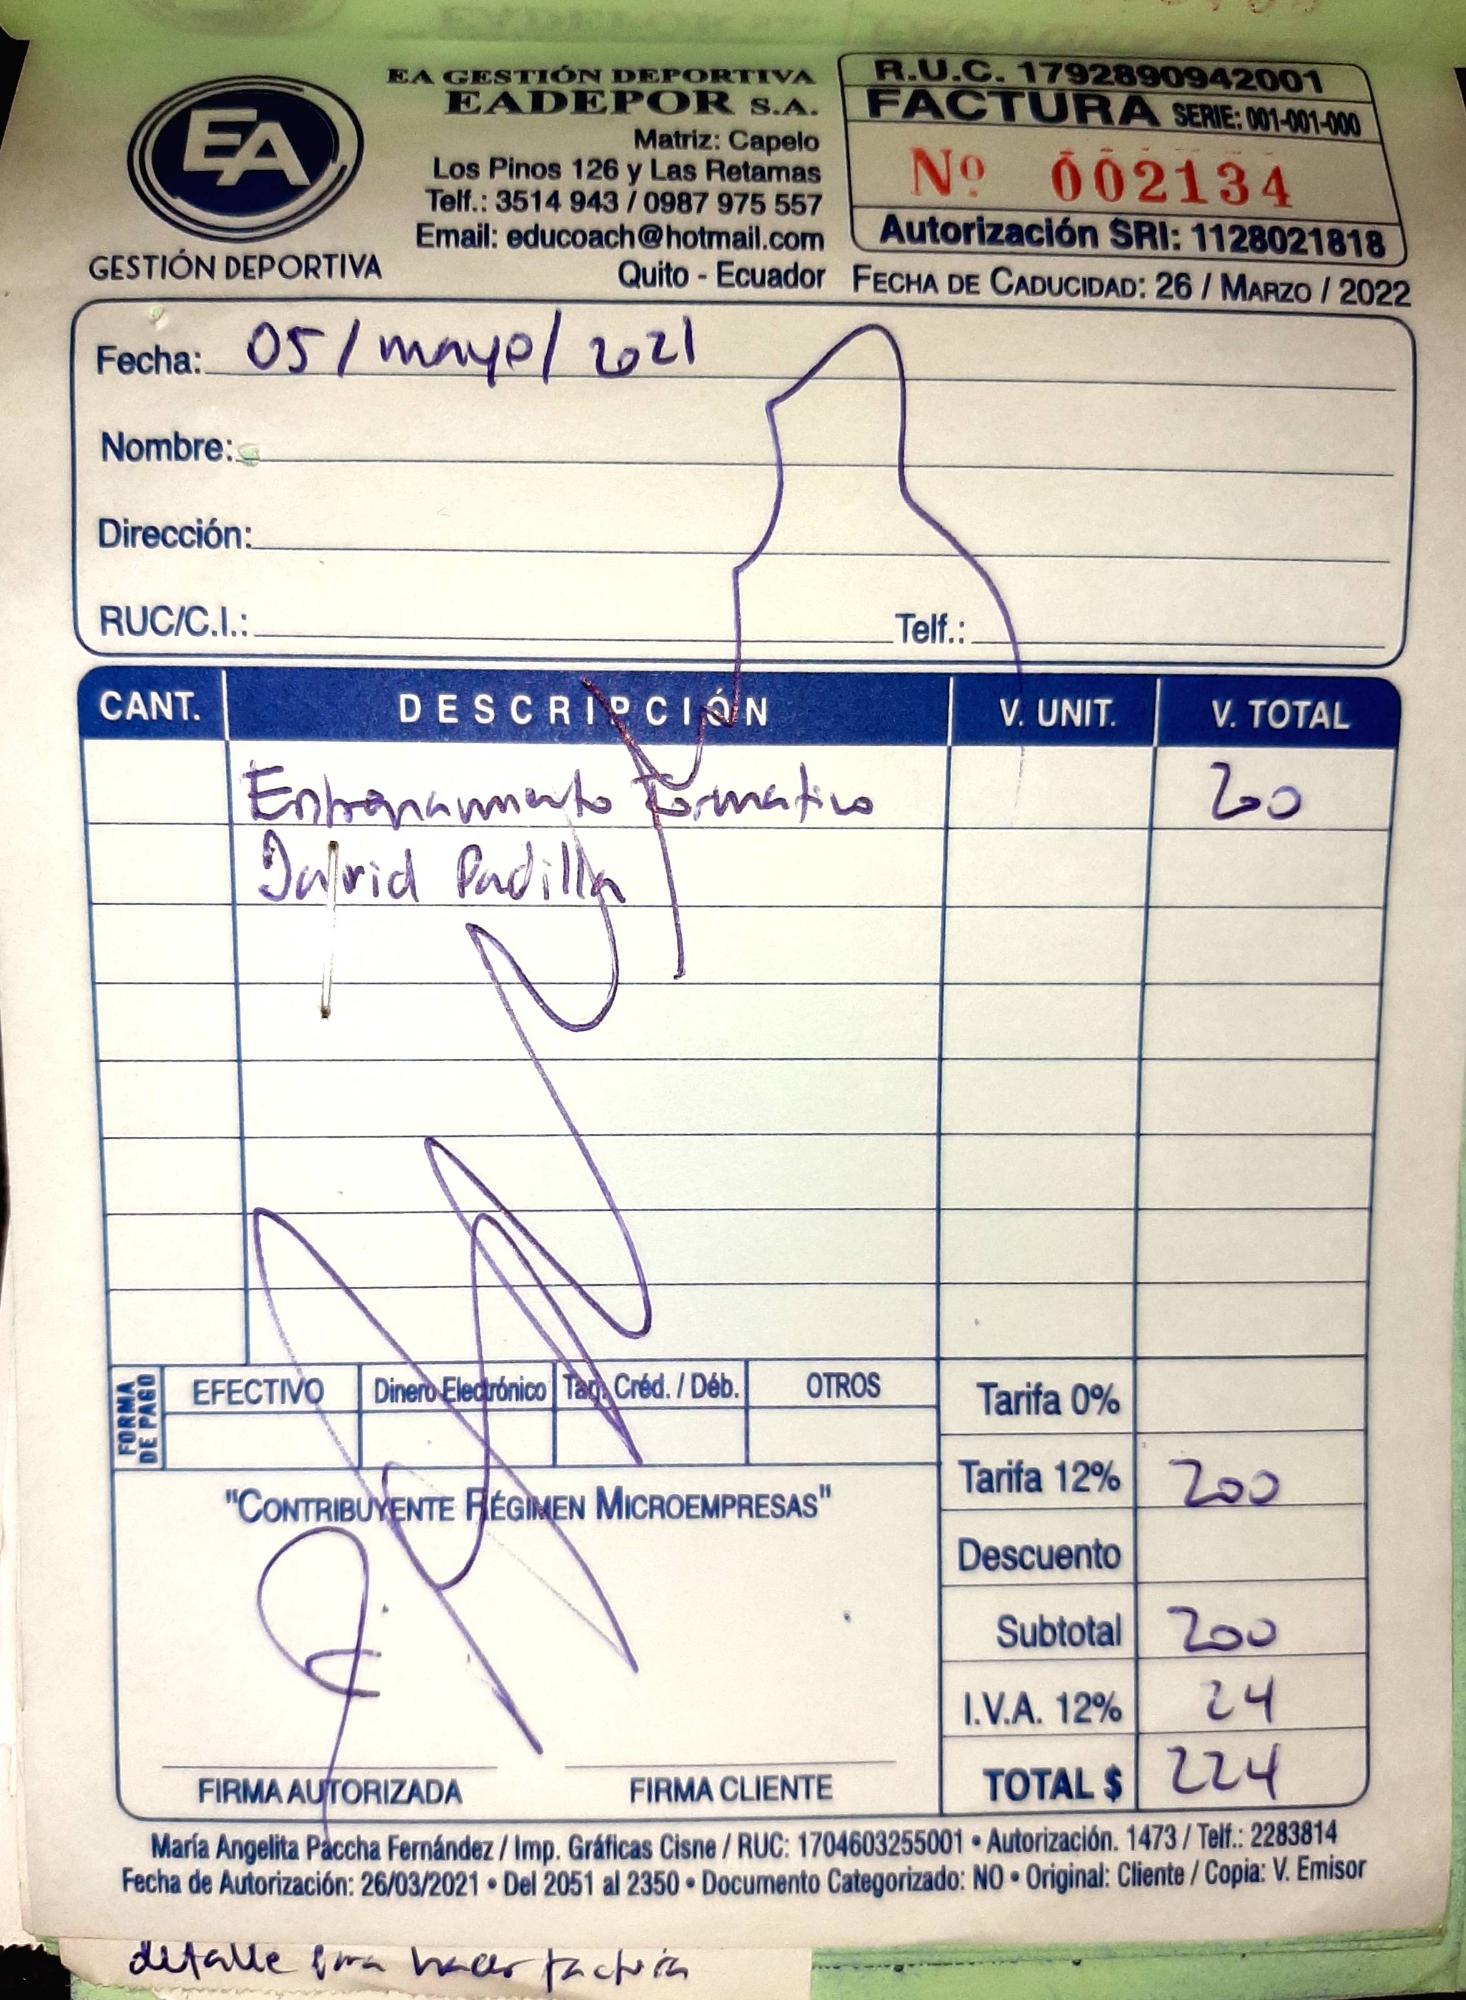 EA
GESTIÓN DEPORTIVA
EA GESTIÓN DEPORTIVA
EADEPOR S.A.
Matriz: Capelo
Los Pinos 126 y Las Retamas
Telf.: 3514 943 / 0987 975 557
Email: educoach@hotmail.com
Quito - Ecuador
R.U.C. 1792890942001
FACTURA SERIE: 001-001-000
Nº 002134
Autorización SRI: 1128021818
FECHA DE CADUCIDAD: 26 / MARZO / 2022
Fecha: 05/mayo/2021
Nombre:
Dirección:
RUC/C.I.: Telf.:
CANT. DESCRIPCIÓN V. UNIT. V. TOTAL
Entrenamiento Formativo 200
Padilla
FORMA DE PAGO
EFECTIVO Dinero Electrónico Tarj. Créd. / Déb. OTROS
Tarifa 0%
Tarifa 12% 200
"CONTRIBUYENTE RÉGIMEN MICROEMPRESAS"
Descuento
Subtotal 200
I.V.A. 12% 24
TOTAL $ 224
FIRMA AUTORIZADA FIRMA CLIENTE
María Angelita Paccha Fernández / Imp. Gráficas Cisne / RUC: 1704603255001 • Autorización. 1473 / Telf.: 2283814
Fecha de Autorización: 26/03/2021 • Del 2051 al 2350 • Documento Categorizado: NO • Original: Cliente / Copia: V. Emisor
detalle para hacer factura